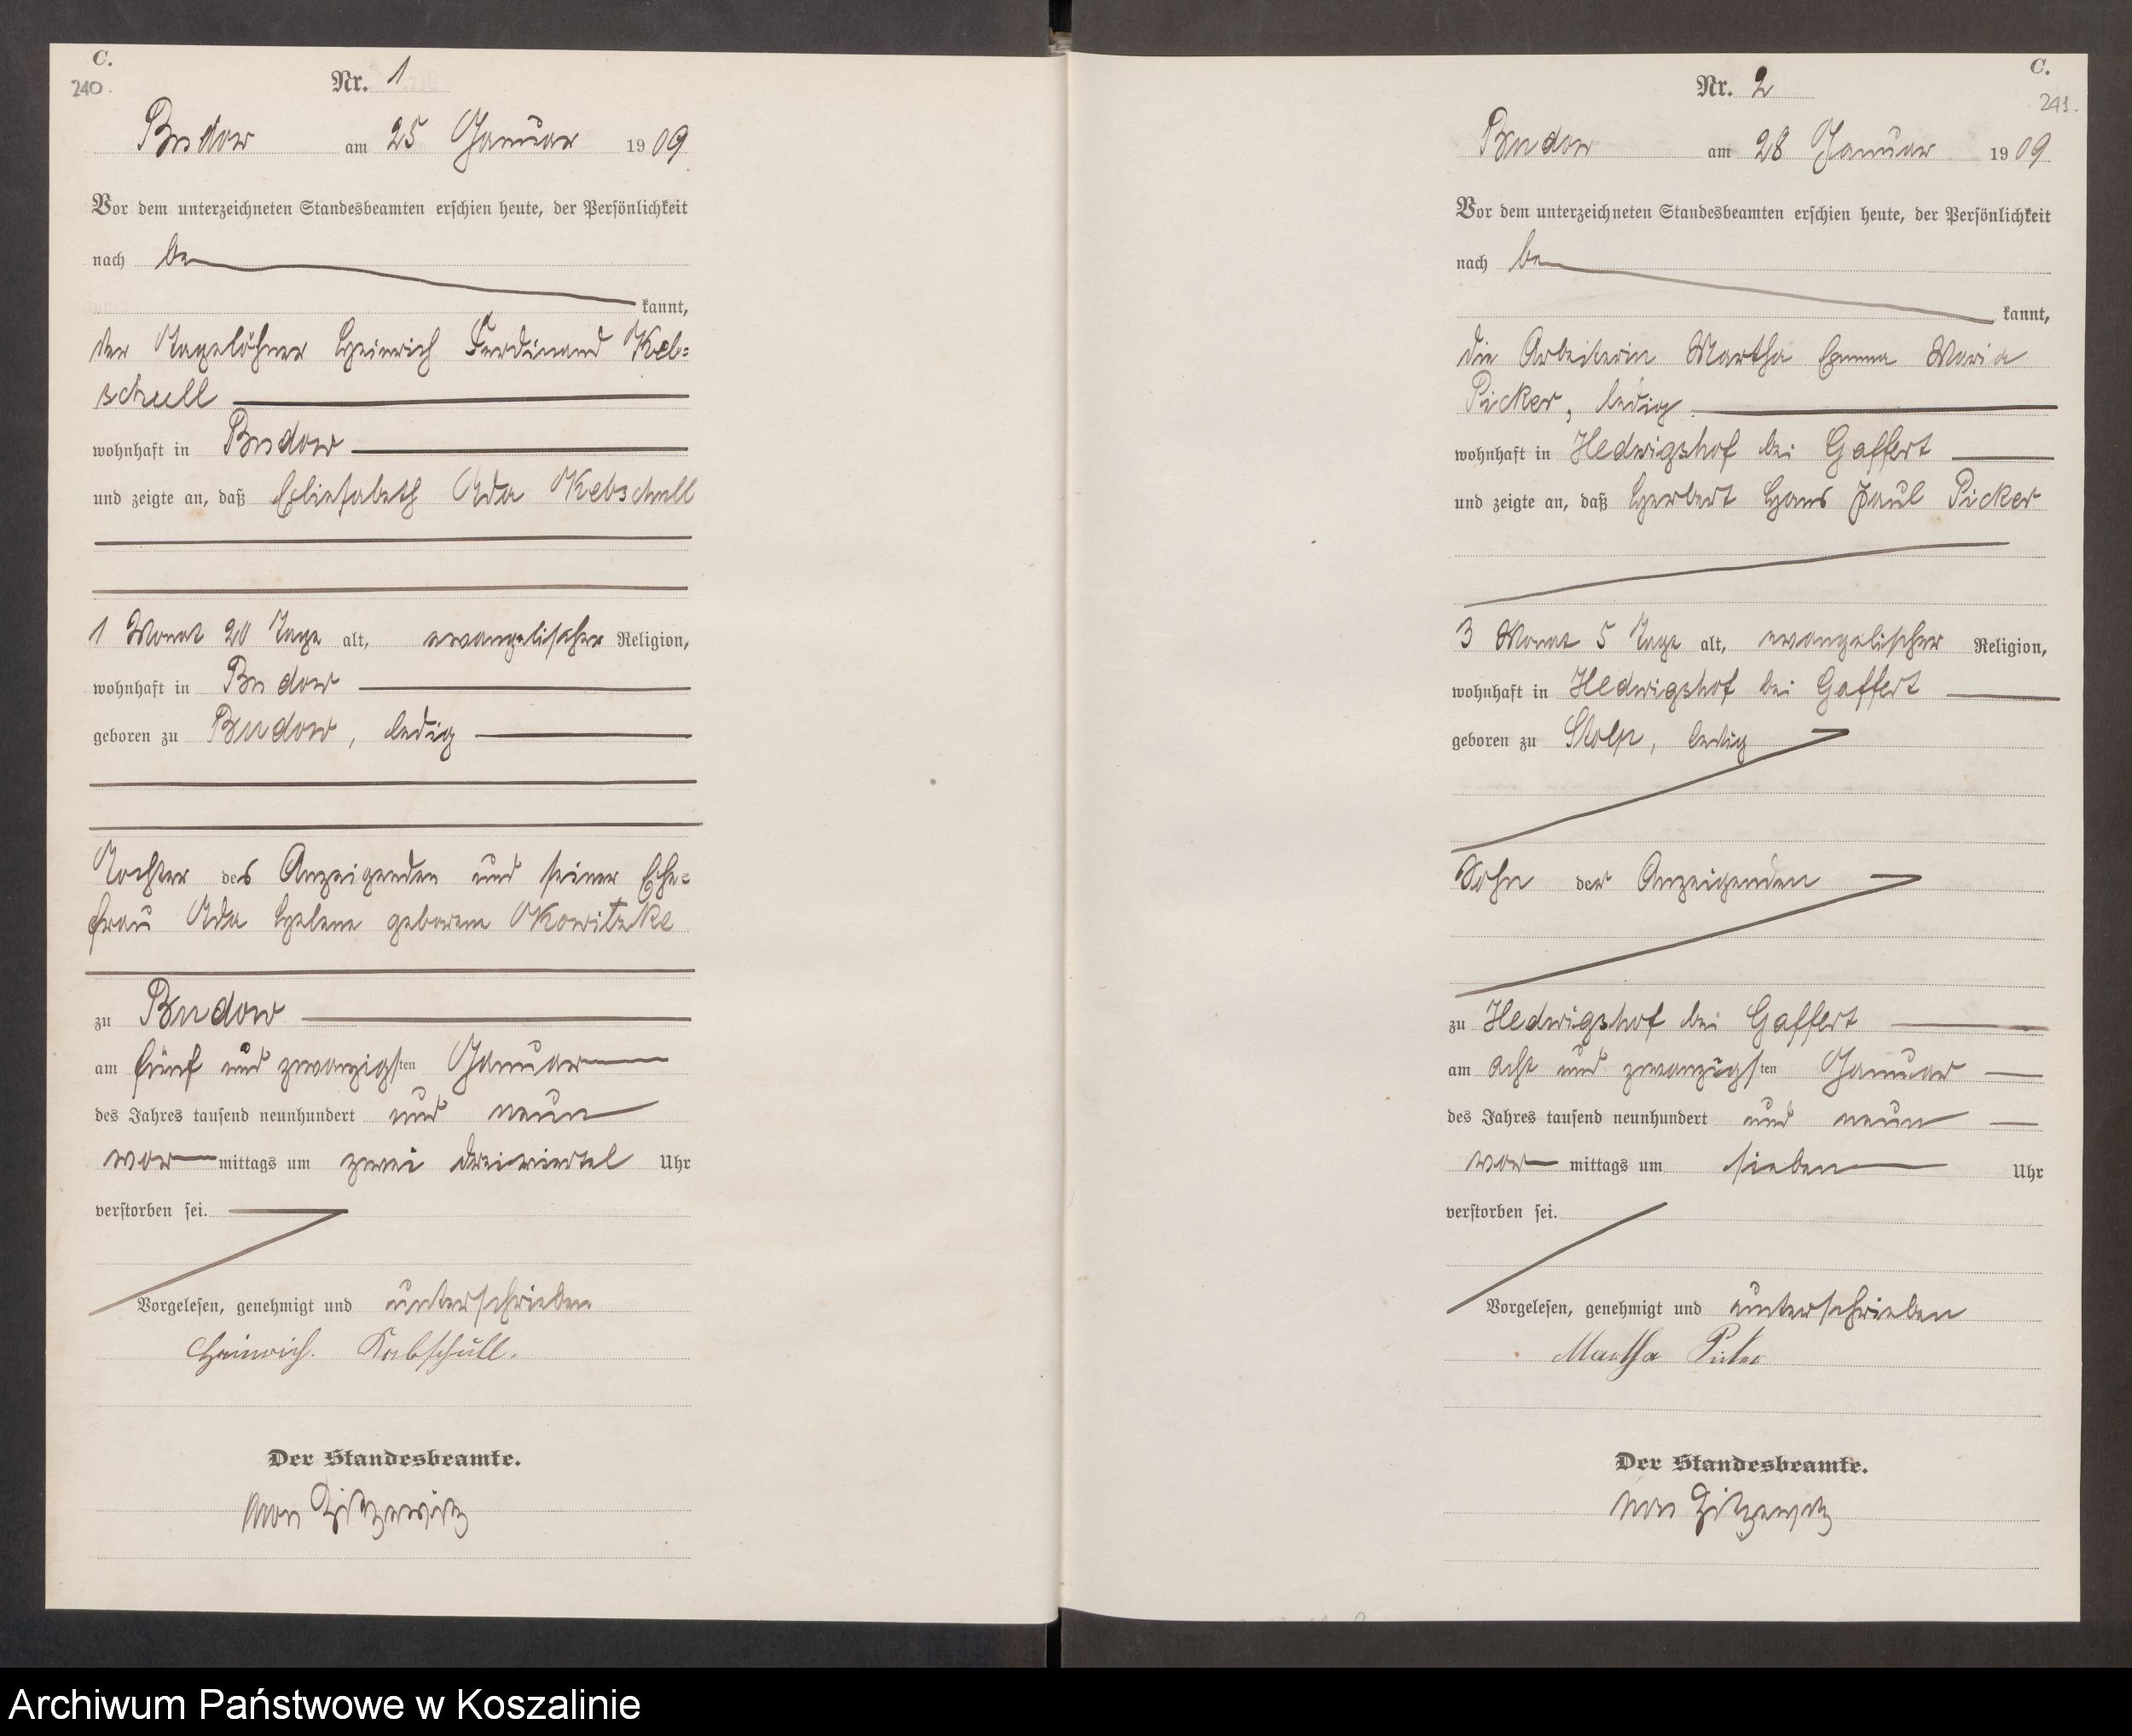 C.
240.
Nr. 1
Budow am 25 Januar 1909
Vor dem unterzeichneten Standesbeamten erschien heute, der Persönlichkeit
nach be
kannt,
der Tagelöhner Heinrich Ferdinand Keb=
schull
wohnhaft in Budow
und zeigte an, daß Eliesabeth Ida Kebschull
1 Monat 20 Tage alt, evangelischer Religion,
wohnhaft in Budow
geboren zu Budow, ledig
Tochter des Anzeigenden und seiner Ehe=
frau Ida Helene geborene
zu Budow
am fünf und zwanzigsten Januar
des Jahres tausend neunhundert und neun
vor mittags um zwei dreiviertel Uhr
verstorben sei.
Vorgelesen, genehmigt und unterschrieben
Heinrich. Kebschull.
Der Standesbeamte.
von Zitzewitz
C.
241.
Nr. 2
Budow am 28 Januar 1909
Vor dem unterzeichneten Standesbeamten erschien heute, der Persönlichkeit
nach be
kannt,
die Arbeiterin Martha Emma Maria
Picker, ledig
wohnhaft in Hedwigshof bei Gaffert
und zeigte an, daß Herbert Hans Paul Picker
3 Monat 5 Tage alt, evangelischer Religion,
wohnhaft in Hedwigshof bei Gaffert
geboren zu Stolp, ledig
Sohn der Anzeigenden
zu Hedwigshof bei Gaffert
am acht und zwanzigsten Januar
des Jahres tausend neunhundert und neun
vor mittags um sieben Uhr
verstorben sei.
Vorgelesen, genehmigt und unterschrieben
Martha Picker
Der Standesbeamte.
von Zitzewitz
Archiwum Państwowe w Koszalinie